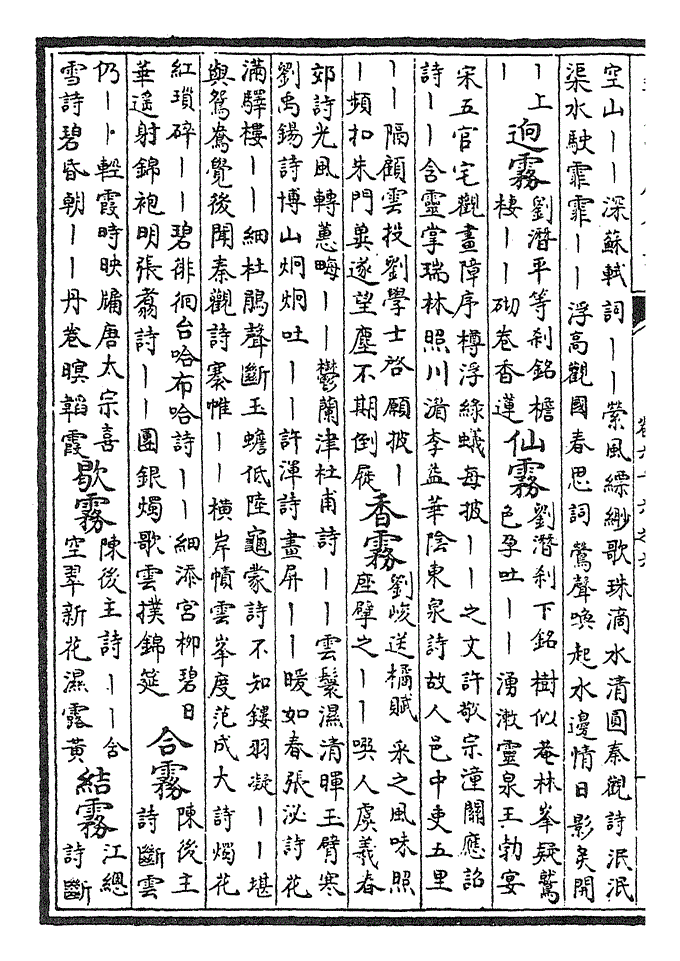 空山丨丨深蘇軾詞丨丨縈風縹緲歌珠滴水清圓秦觀詩泯泯
渠水駛霏霏丨丨浮高觀國春思詞鶯聲喚起水邊情日影炙開
丨上
丨
迥霧
劉潛平等刹銘檐
棲丨丨砌卷香蓮
仙霧
劉潛刹下銘樹似菴林峯疑鷲
色孕吐丨丨湧漱靈泉王勃宴
宋五官宅觀畫障序樽浮綠蟻每披丨丨之文許敬宗潼關應詔
詩丨丨含靈掌瑞林照川湑李益華陰東泉詩故人邑中吏五里
丨丨隔顧雲投劉學士啓願披丨
丨頻扣朱門冀遂望塵不期倒屣
香霧
劉峻送橘賦采之風味照
座擘之丨丨噀人虞羲春
郊詩光風轉蕙晦丨丨鬱蘭津杜甫詩丨丨雲鬟濕清暉玉臂寒
劉禹錫詩博山炯炯吐丨丨許渾詩畫屏丨丨暖如春張泌詩花
滿驛樓丨丨細杜鵑聲斷玉蟾低陸龜蒙詩不知鏤羽凝丨丨堪
與鴛鴦覺後聞秦觀詩褰帷丨丨橫岸幘雲峯度范成大詩燭花
紅瑣碎丨丨碧徘徊台哈布哈詩丨丨細添宮柳碧日
華遙射錦袍明張翥詩丨丨團銀燭歌雲撲錦筵
合霧
陳後主
詩斷雲
仍丨丨輕霞時映牖唐太宗喜
雪詩碧昏朝丨丨丹卷暝韜霞
歇霧
陳後主詩丨丨含
空翠新花濕露黃
結霧
江總
詩斷